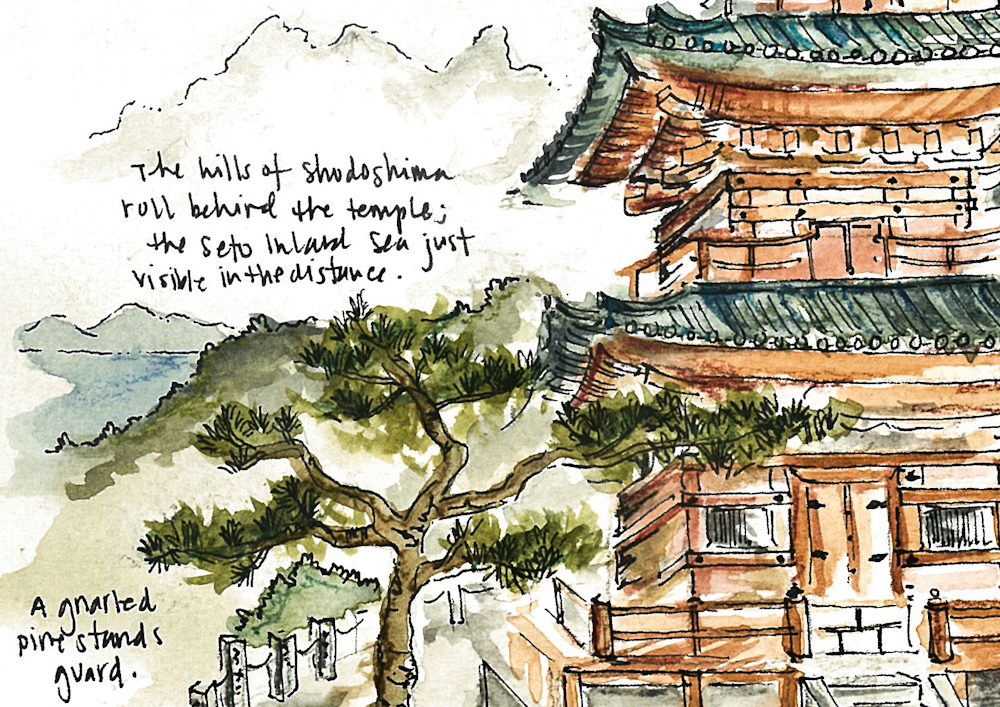 The hills of Shodoshima
roll behind the temple;
the Seto Inland Sea just
visible in the distance.
A gnarled
pine stands
guard.